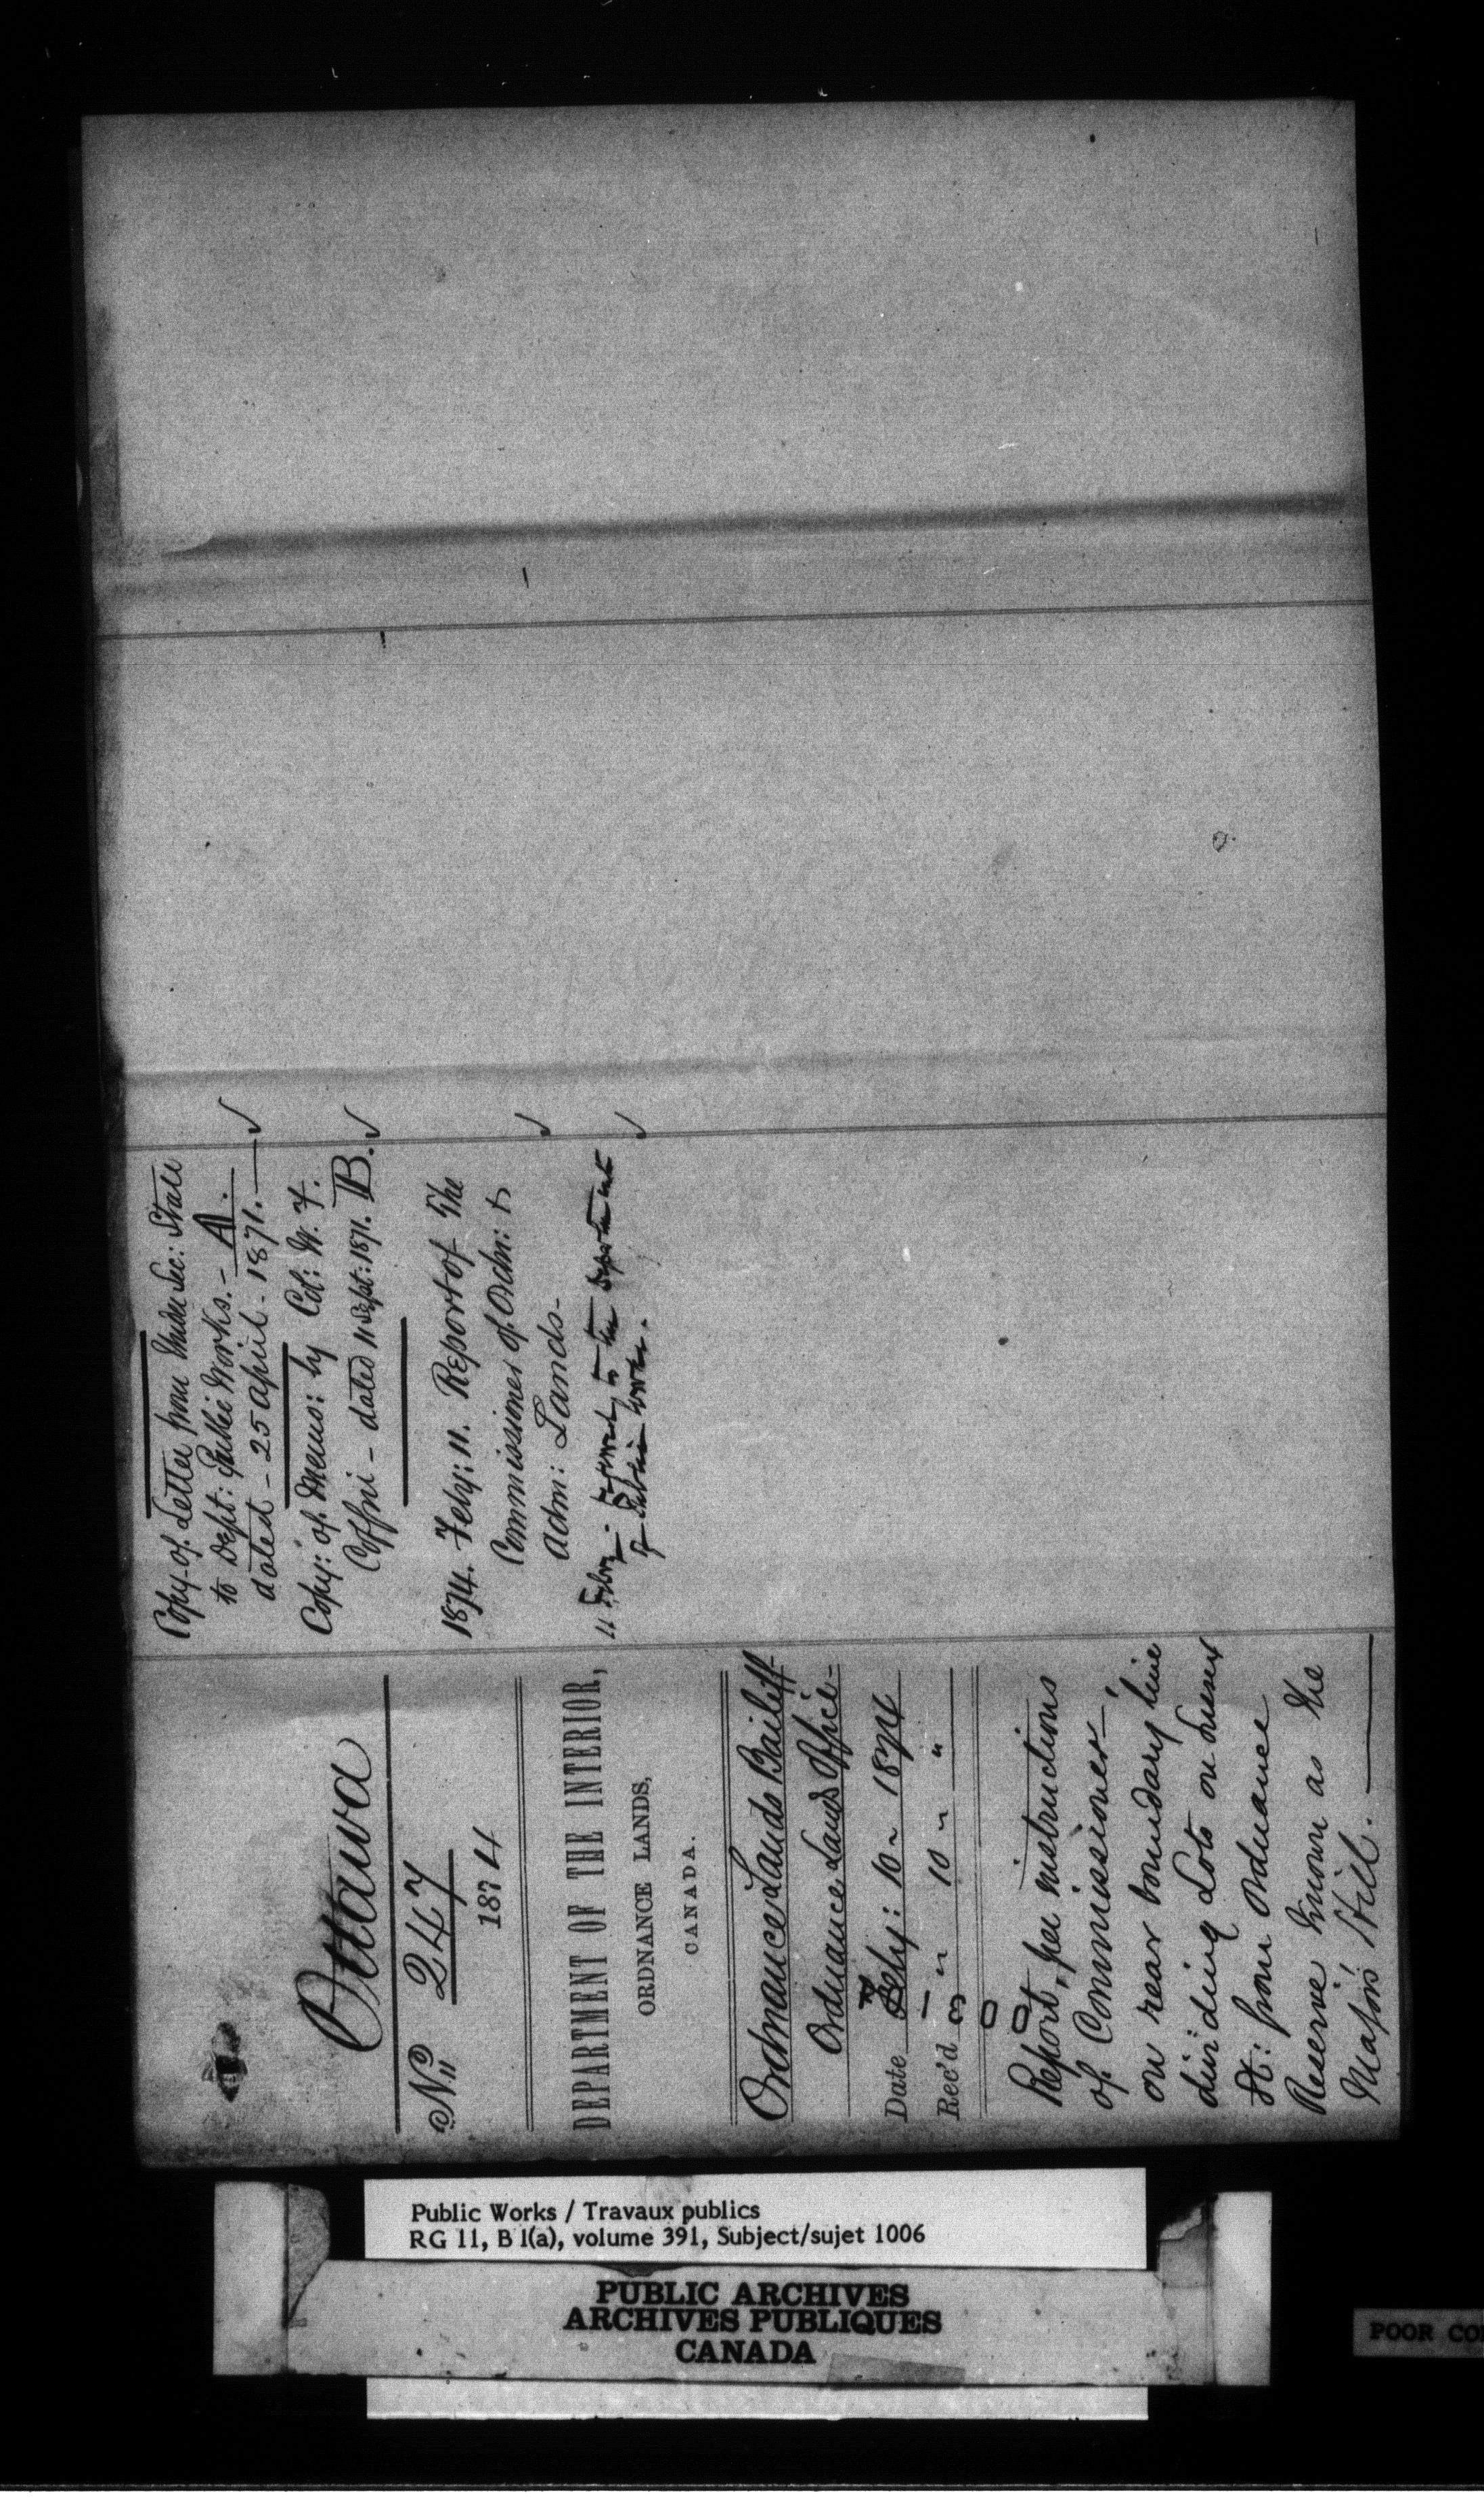 Ottawa
No 247
1874
DEPARTMENT OF THE INTERIOR,
ORDNANCE LANDS,
CANADA.
Ordnance Lands Bailiff
Ordnance Lands Office -
Date Feby: 10 ~ 1874
Rec'd " 10 ~ "
Report, per instructions
of Commissioner -
on rear boundary line
dividing Lots on Sussex
St: from Ordnance
Reserve known as the
Major's Hill.
Copy of Letter from Under Sec: State
to Dept: Public Works. - A.
dated - 25 April - 1871. ✓
Copy: of Memo: by Col: W. F.
Coffin - dated 11 Sept: 1871. B. ✓
1874. Feby: 11. Report of the
Commissioner of Ordn: &
Adm: Lands - ✓
11 Feby - referred to the Department ✓
of Public Works.
Public Works / Travaux publics
RG 11, B 1(a), volume 391, Subject/sujet 1006
PUBLIC ARCHIVES
ARCHIVES PUBLIQUES
CANADA
POOR CO